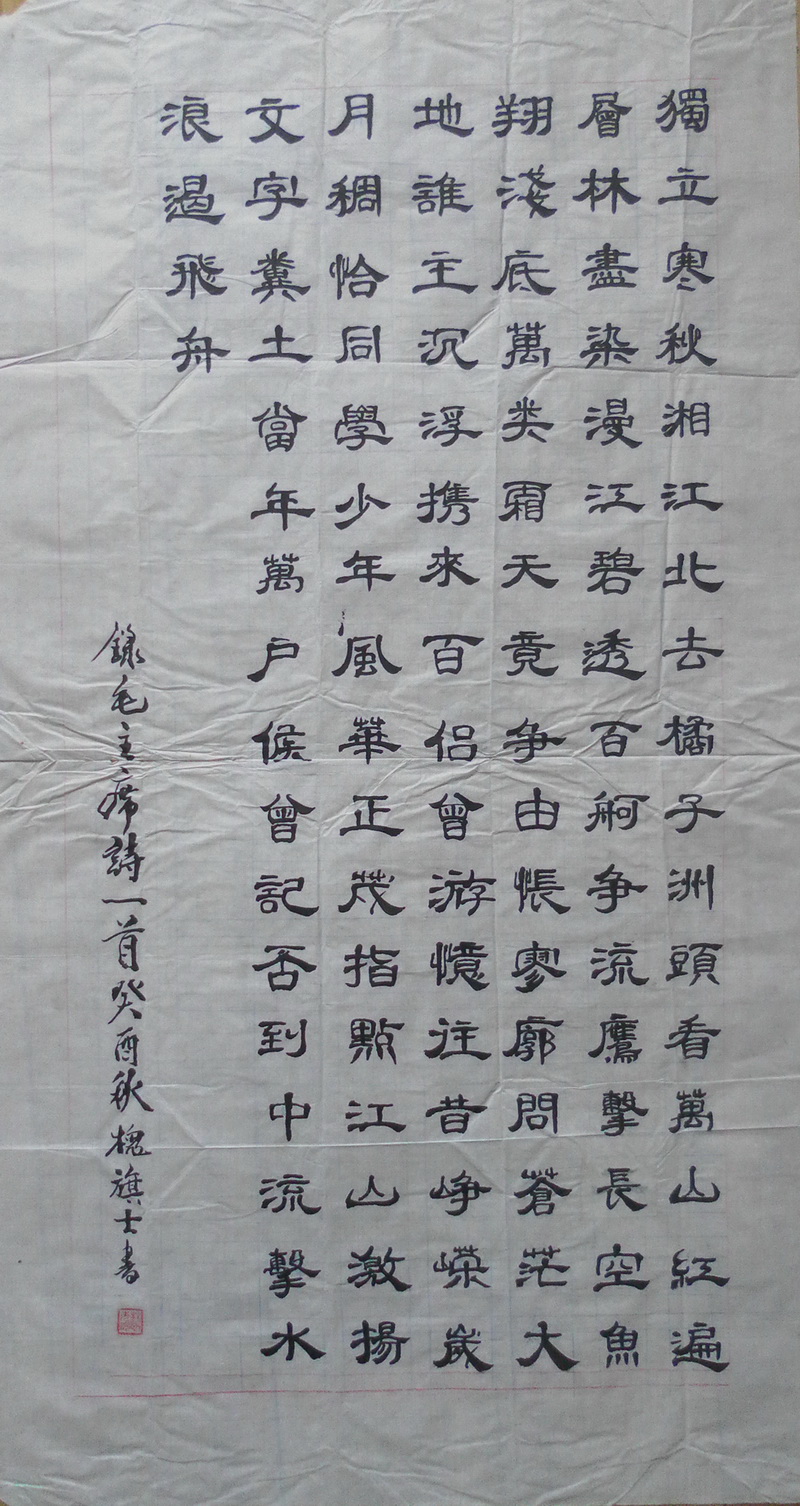 獨立寒秋湘江北去橘子洲頭看萬山紅遍
層林盡染漫江碧透百舸争流鷹擊長空魚
翔淺底萬类霜天竟争由悵寥廓問蒼茫大
地誰主沉浮携來百侣曾游憶往昔崢嶸歲
月稠恰同學少年風華正茂指點江山激揚
文字糞土當年萬户侯曾記否到中流擊水
浪遏飛舟
錄毛主席詩一首癸酉秋槐旗士書